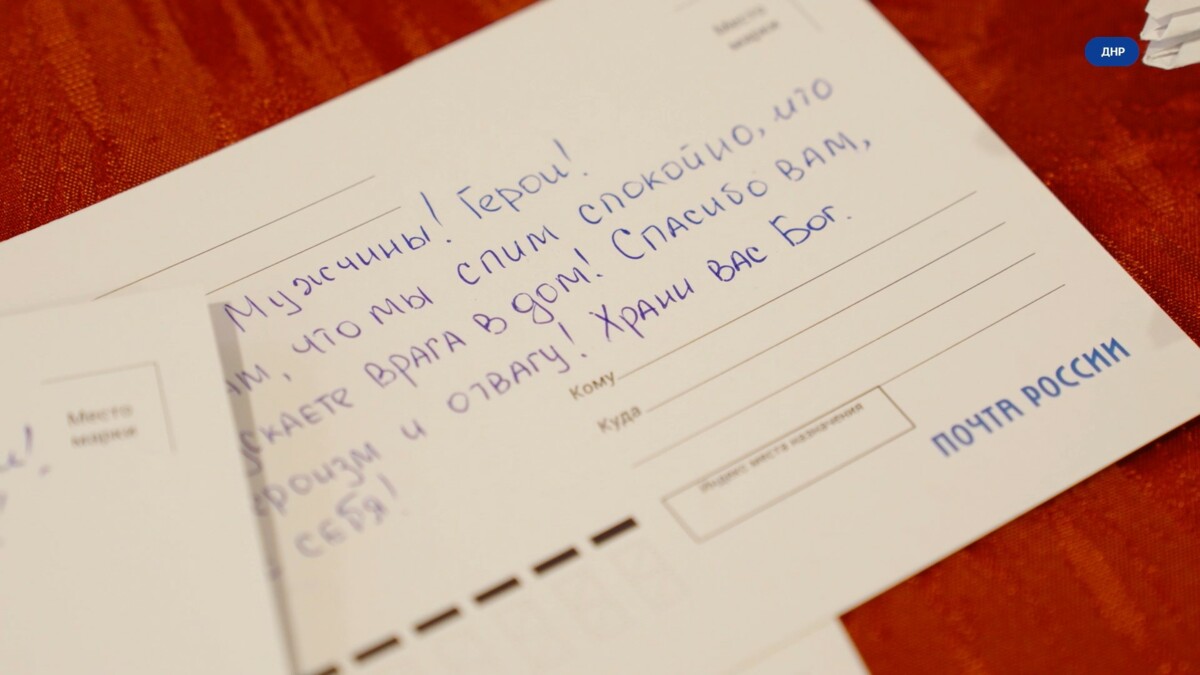 ДНР
Место
марки
Мужчины! Герои!
что мы спим спокойно, что
врага в дом! Спасибо вам,
и отвагу! Храни вас Бог.
себя!
Кому
Куда
Индекс места назначения
ПОЧТА РОССИИ
Место
марки